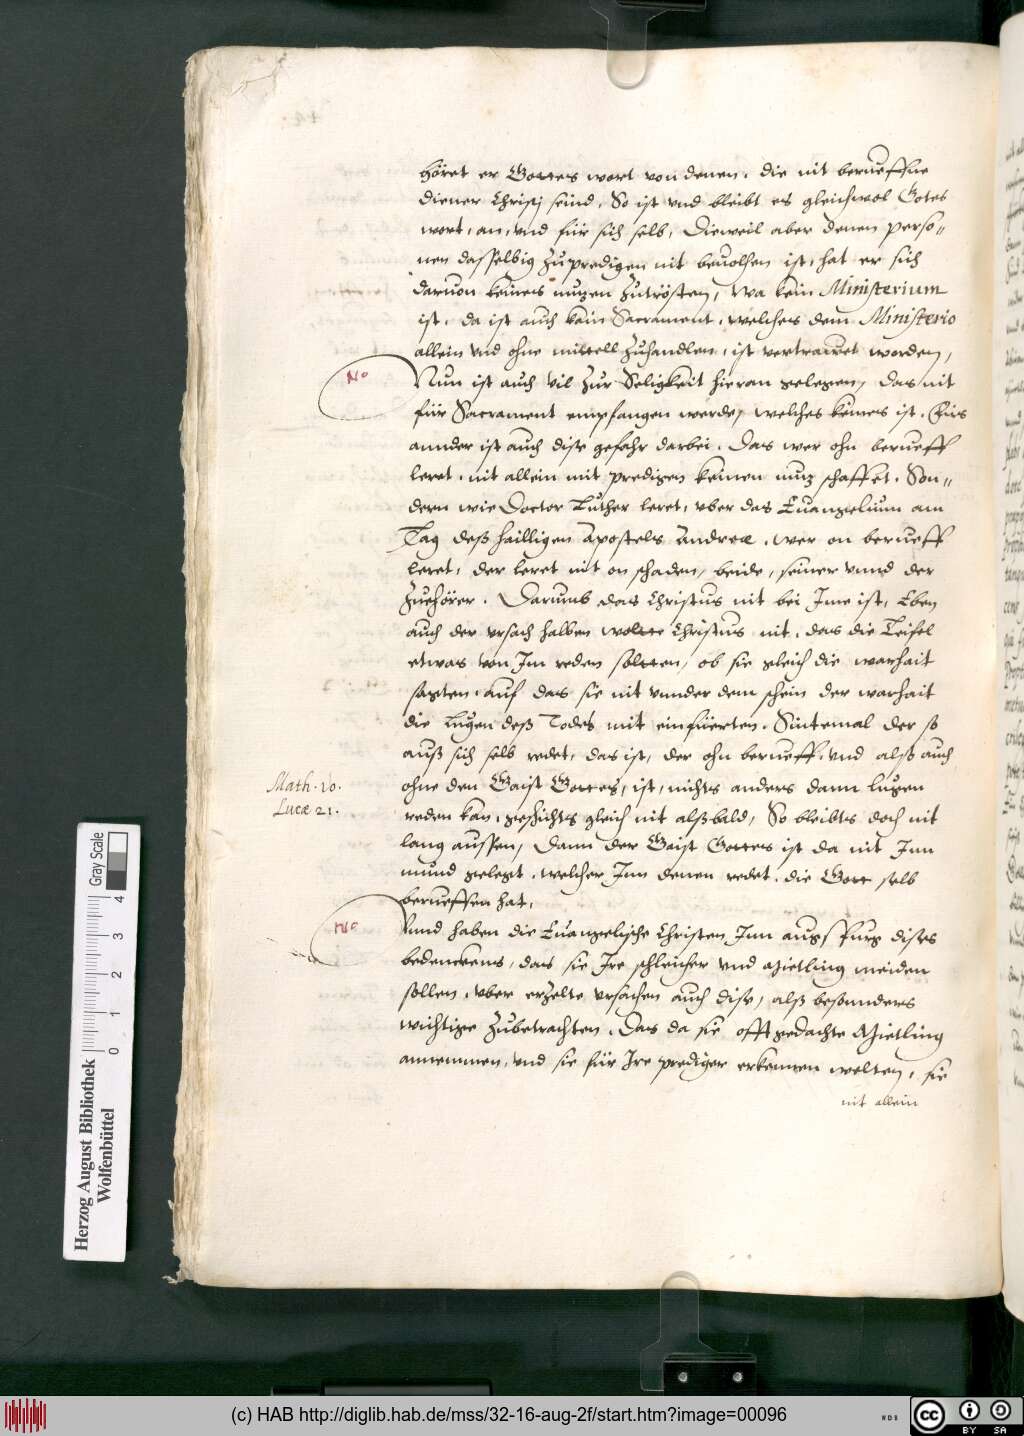 höret er Gottes wort von denen, die nit berueffne
diener Christj seind, So ist vnd bleibt es gleichwol Gotes
wort, an, vnd für sich selb, Dieweil aber denen perso-
nen dasselbig zupredigen nit beuolhen ist, hat er sich
daruon keines nuzen zutrösten, Wa kein Ministerium
ist, da ist auch kain Sacrament, welches dem Ministerio
allein vnd ohne mittell zuhandlen, ist vertrawet worden,
No
Nun ist auch vil zur Seligkeit hieran gelegen, das nit
für Sacrament empfangen werde, welches keines ist. Fürs
annder ist auch dise gefahr darbei. Das wer ohn berueff
leret, nit allein mit predigen keinen nuz schaffet. Son-
dern wie Doctor Luther leret, vber das Euangelium am
Tag deß hailligen Apostels Andreæ, wer on berueff
leret, der leret nit on schaden, beide, seiner vnnd der
Zuehörer. Darumb das Christus nit bei Ime ist, Eben
auch der vrsach halben wolte Christus nit, das die Teifel
etwas von Im reden soltten, ob sie gleich die warhait
sagten, auf das sie nit vnnder dem schein der warhait
die lugen deß Todes mit einfüerten. Sintemal der so
auß sich selb redet, das ist, der ohn berueff, vnd alß auch
Math. 10.
Lucæ 21.
ohne den Gaist Gottes, ist, nichts anders dann lugen
reden kan, geschichts gleich nit alßbald, So bleibts doch nit
lang aussen, Dann der Gaist Gottes ist da nit Inn
mund gelegt, welcher Inn denen redet, die Gott selb
berueffen hat,
No
Vnnd haben die Euangelische Christen Inn augspurg dises
bedenckens, das sie Ire schleicher vnd Mietling meiden
sollen, vber erzelte vrsachen auch dise, alß besonnders
wichtige zubetrachten. Das da sie offtgedachte Mietling
annemmen, vnd sie für Ire prediger erkennen wolten, sie
nit allein
Herzog August Bibliothek
Wolfenbüttel
0 1 2 3 4
Gray Scale
(c) HAB http://diglib.hab.de/mss/32-16-aug-2f/start.htm?image=00096
WDB
cc
BY SA